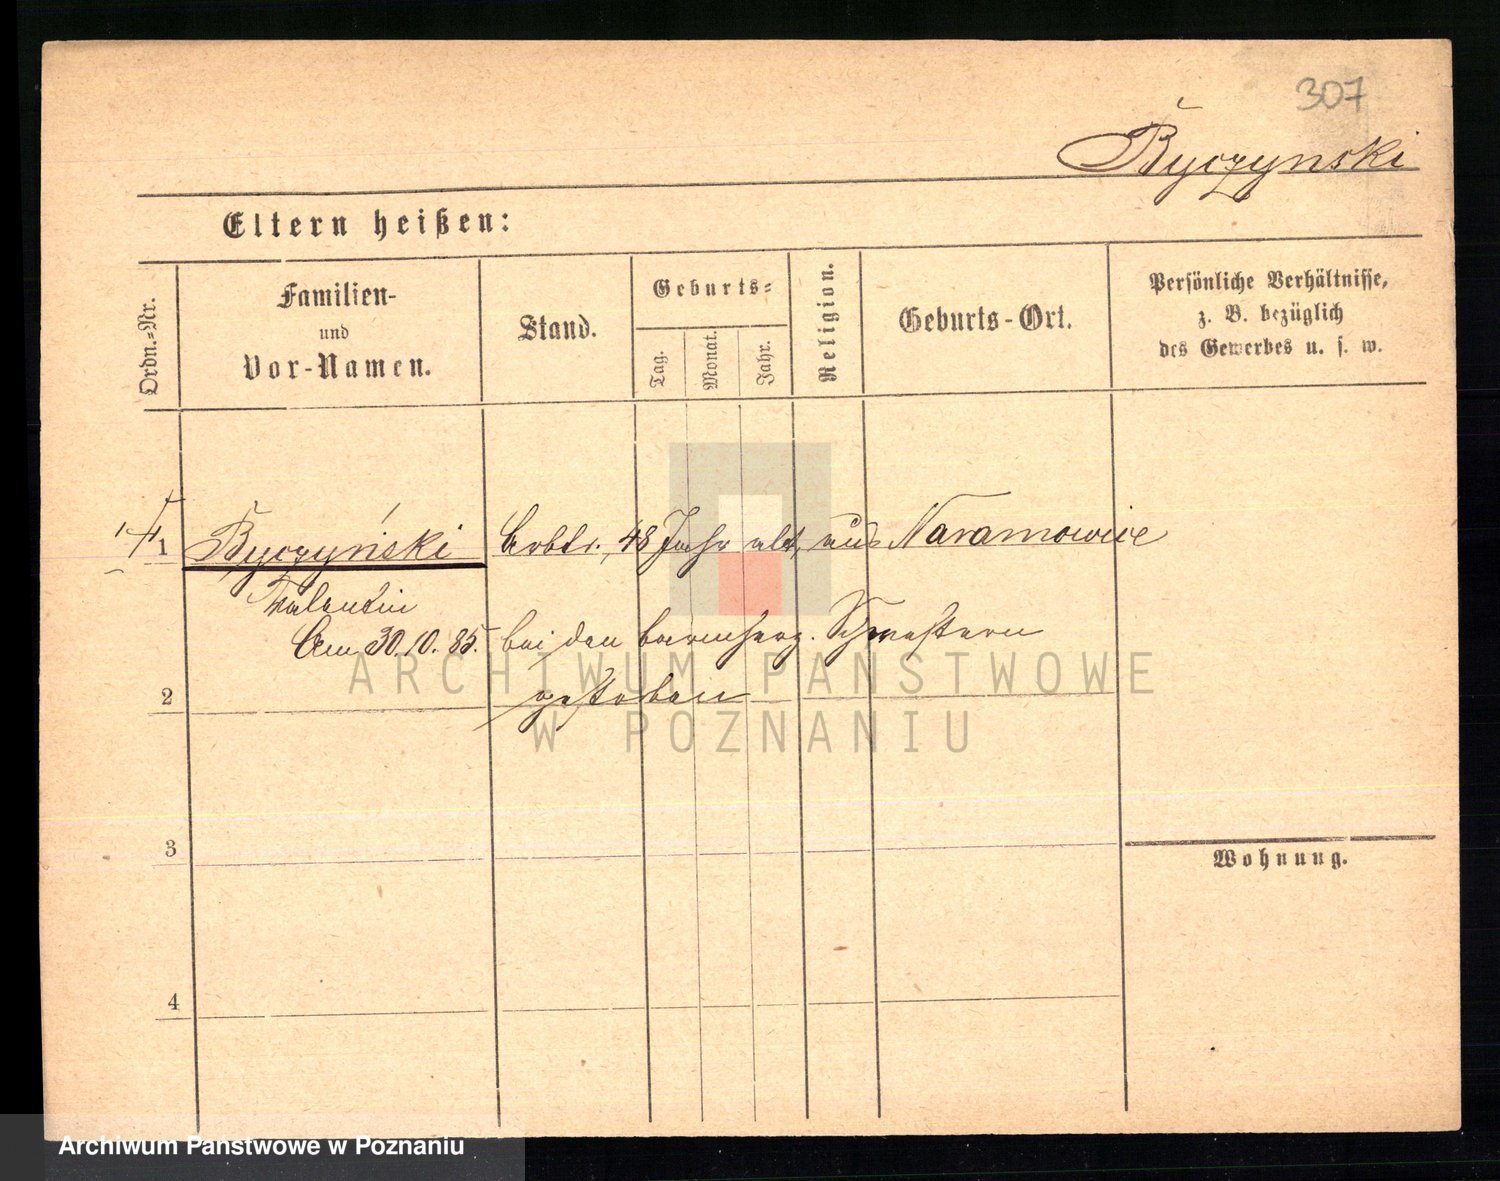 307
Byczynski
Eltern heißen:
Ordn.-Nr.
Familien-
und
Vor-Namen.
Stand.
Geburts-
Tag.
Monat.
Jahr.
Religion.
Geburts-Ort.
Persönliche Verhältnisse,
z. B. bezüglich
des Gewerbes u. s. w.
1 Byczyński Arbtr. 48 Jahr alt, aus Naramowice
Valentin
Am 30.10.85. bei den barmherz. Schwestern
2 gestorben
3
Wohnung.
4
ARCHIWUM PAŃSTWOWE
W POZNANIU
Archiwum Państwowe w Poznaniu